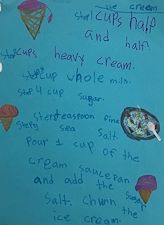 ice cream
Step 1 cups half
and half
Step cups heavy cream.
Step cup whole milk.
Step 4 cup sugar.
Step teaspoon fine
Step sea salt.
Pour 1 cup of the
cream saucepan
and add the sugar
salt. Churn the
ice cream.